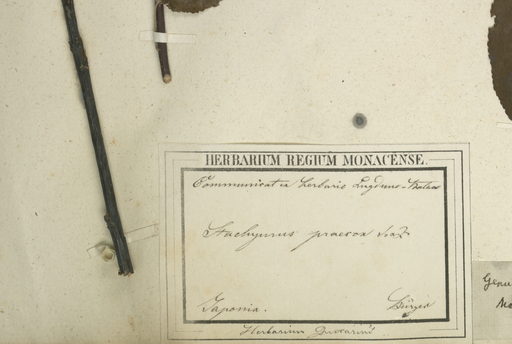 HERBARIUM REGIUM MONACENSE.
Communicat ex herbario Lugduno-Batavo
Stachyurus praecox S. & Z.
Japonia. Bürger
Herbarium Zuccarinii